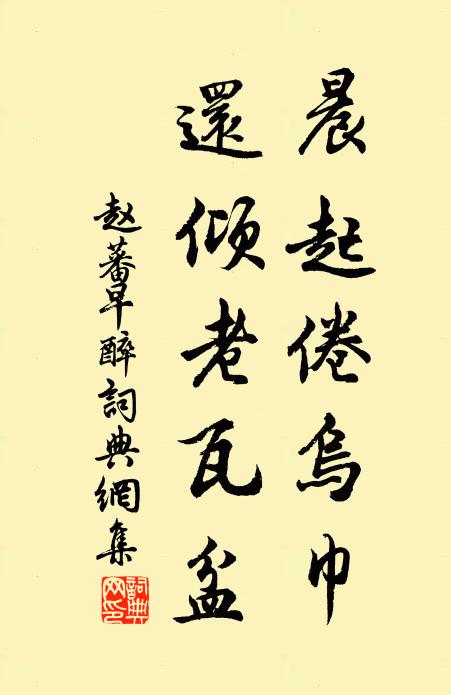 晨起倦烏巾
還傾老瓦盆
赵蕃早醉詞典網集
詞典网印